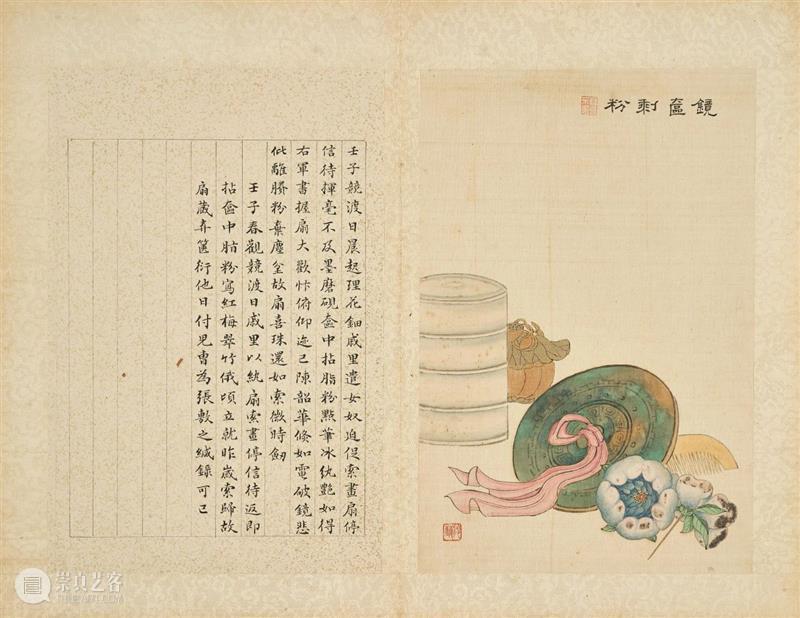 鏡奩剩粉
壬子競渡日晨起理花鈿戚里遣女奴迫促索畫扇停
信待揮毫不及墨磨硯奩中拈脂粉點筆冰紈艷如得
右軍書握扇大歡忭俯仰迹已陳韶華倏如電破鏡悲
仳離賸粉棄塵坌故扇喜珠還如索微時劔
壬子春觀競渡日戚里以紈扇索畫停信待返即
拈奩中脂粉寫紅梅翠竹俄頃立就昨歲索歸故
扇藏弆篋衍他日付兒曹為張敷之緘錄可已
崇真艺客